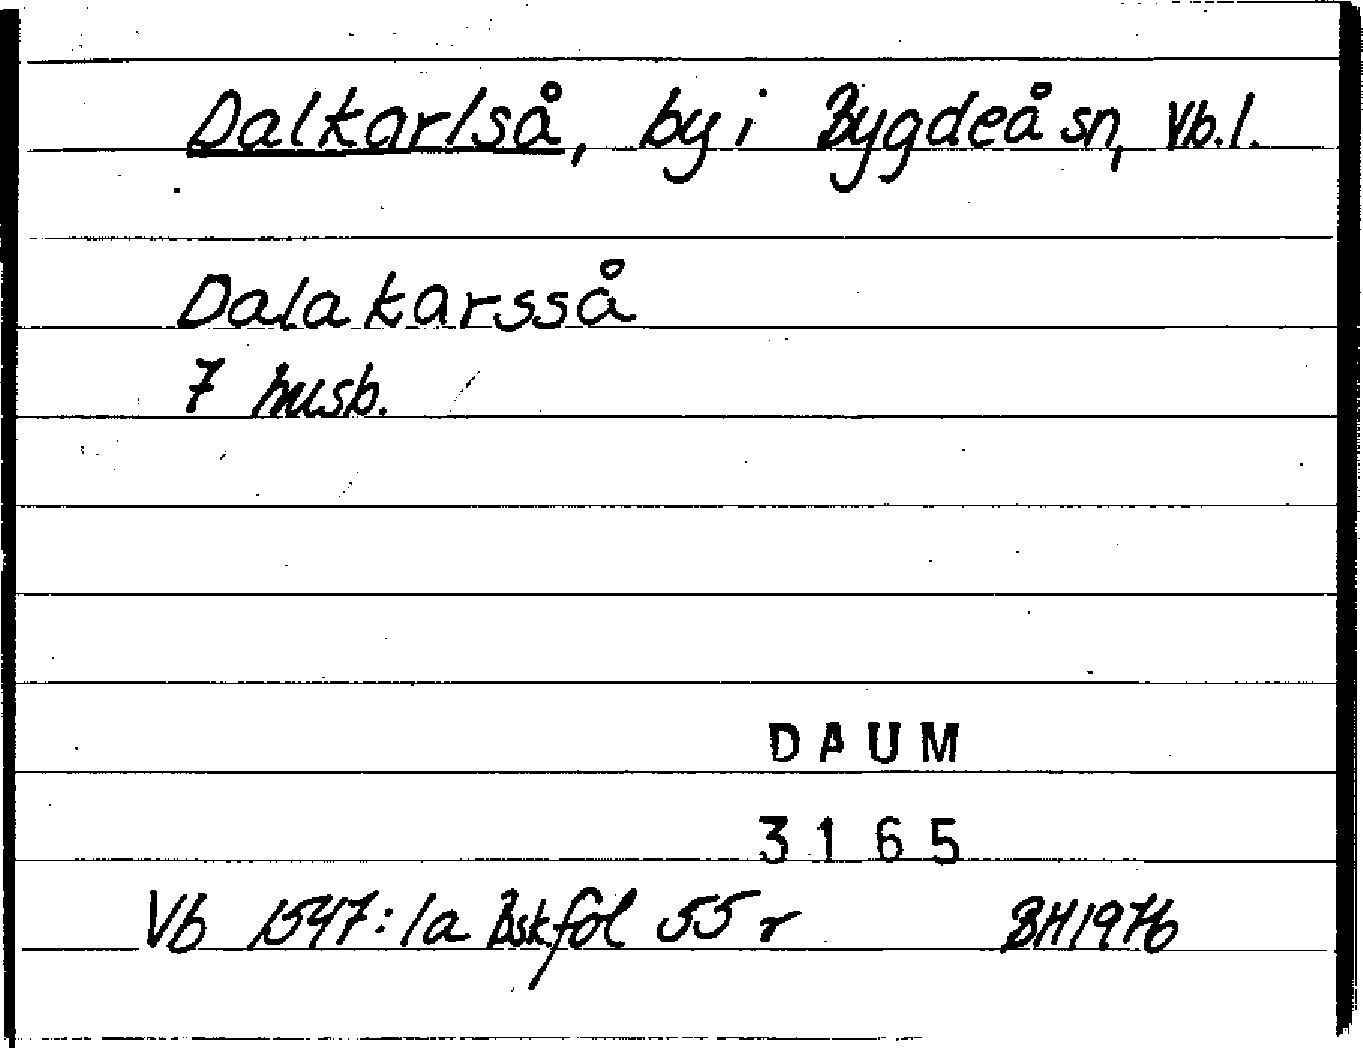 Dalkarlså, by i Bygdeå sn, Vb. l.
Dalakarsså
7 husb.
DAUM
3165
Vb 1547:1a Bskföl 55 r BH1976